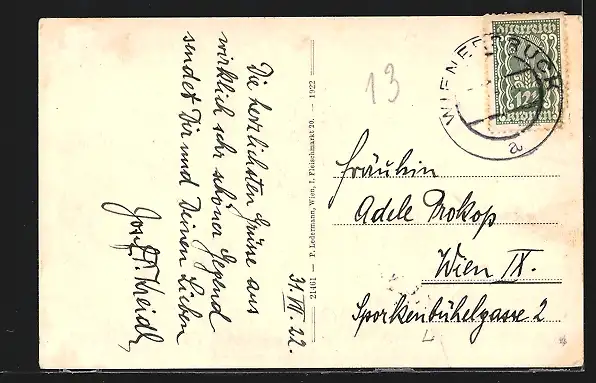 Die herzlichsten Grüsse aus
wirklich sehr schöner Gegend
sendet Dir und Deinen Lieben
31.VII.22.
21461 — P. Ledermann, Wien, I. Fleischmarkt 20. — 1922
13
WIENERBRUCK
a
Österreich
12½
Kronen
Fräulein
Adele Prokop
Wien IX.
Sporkenbühelgasse 2